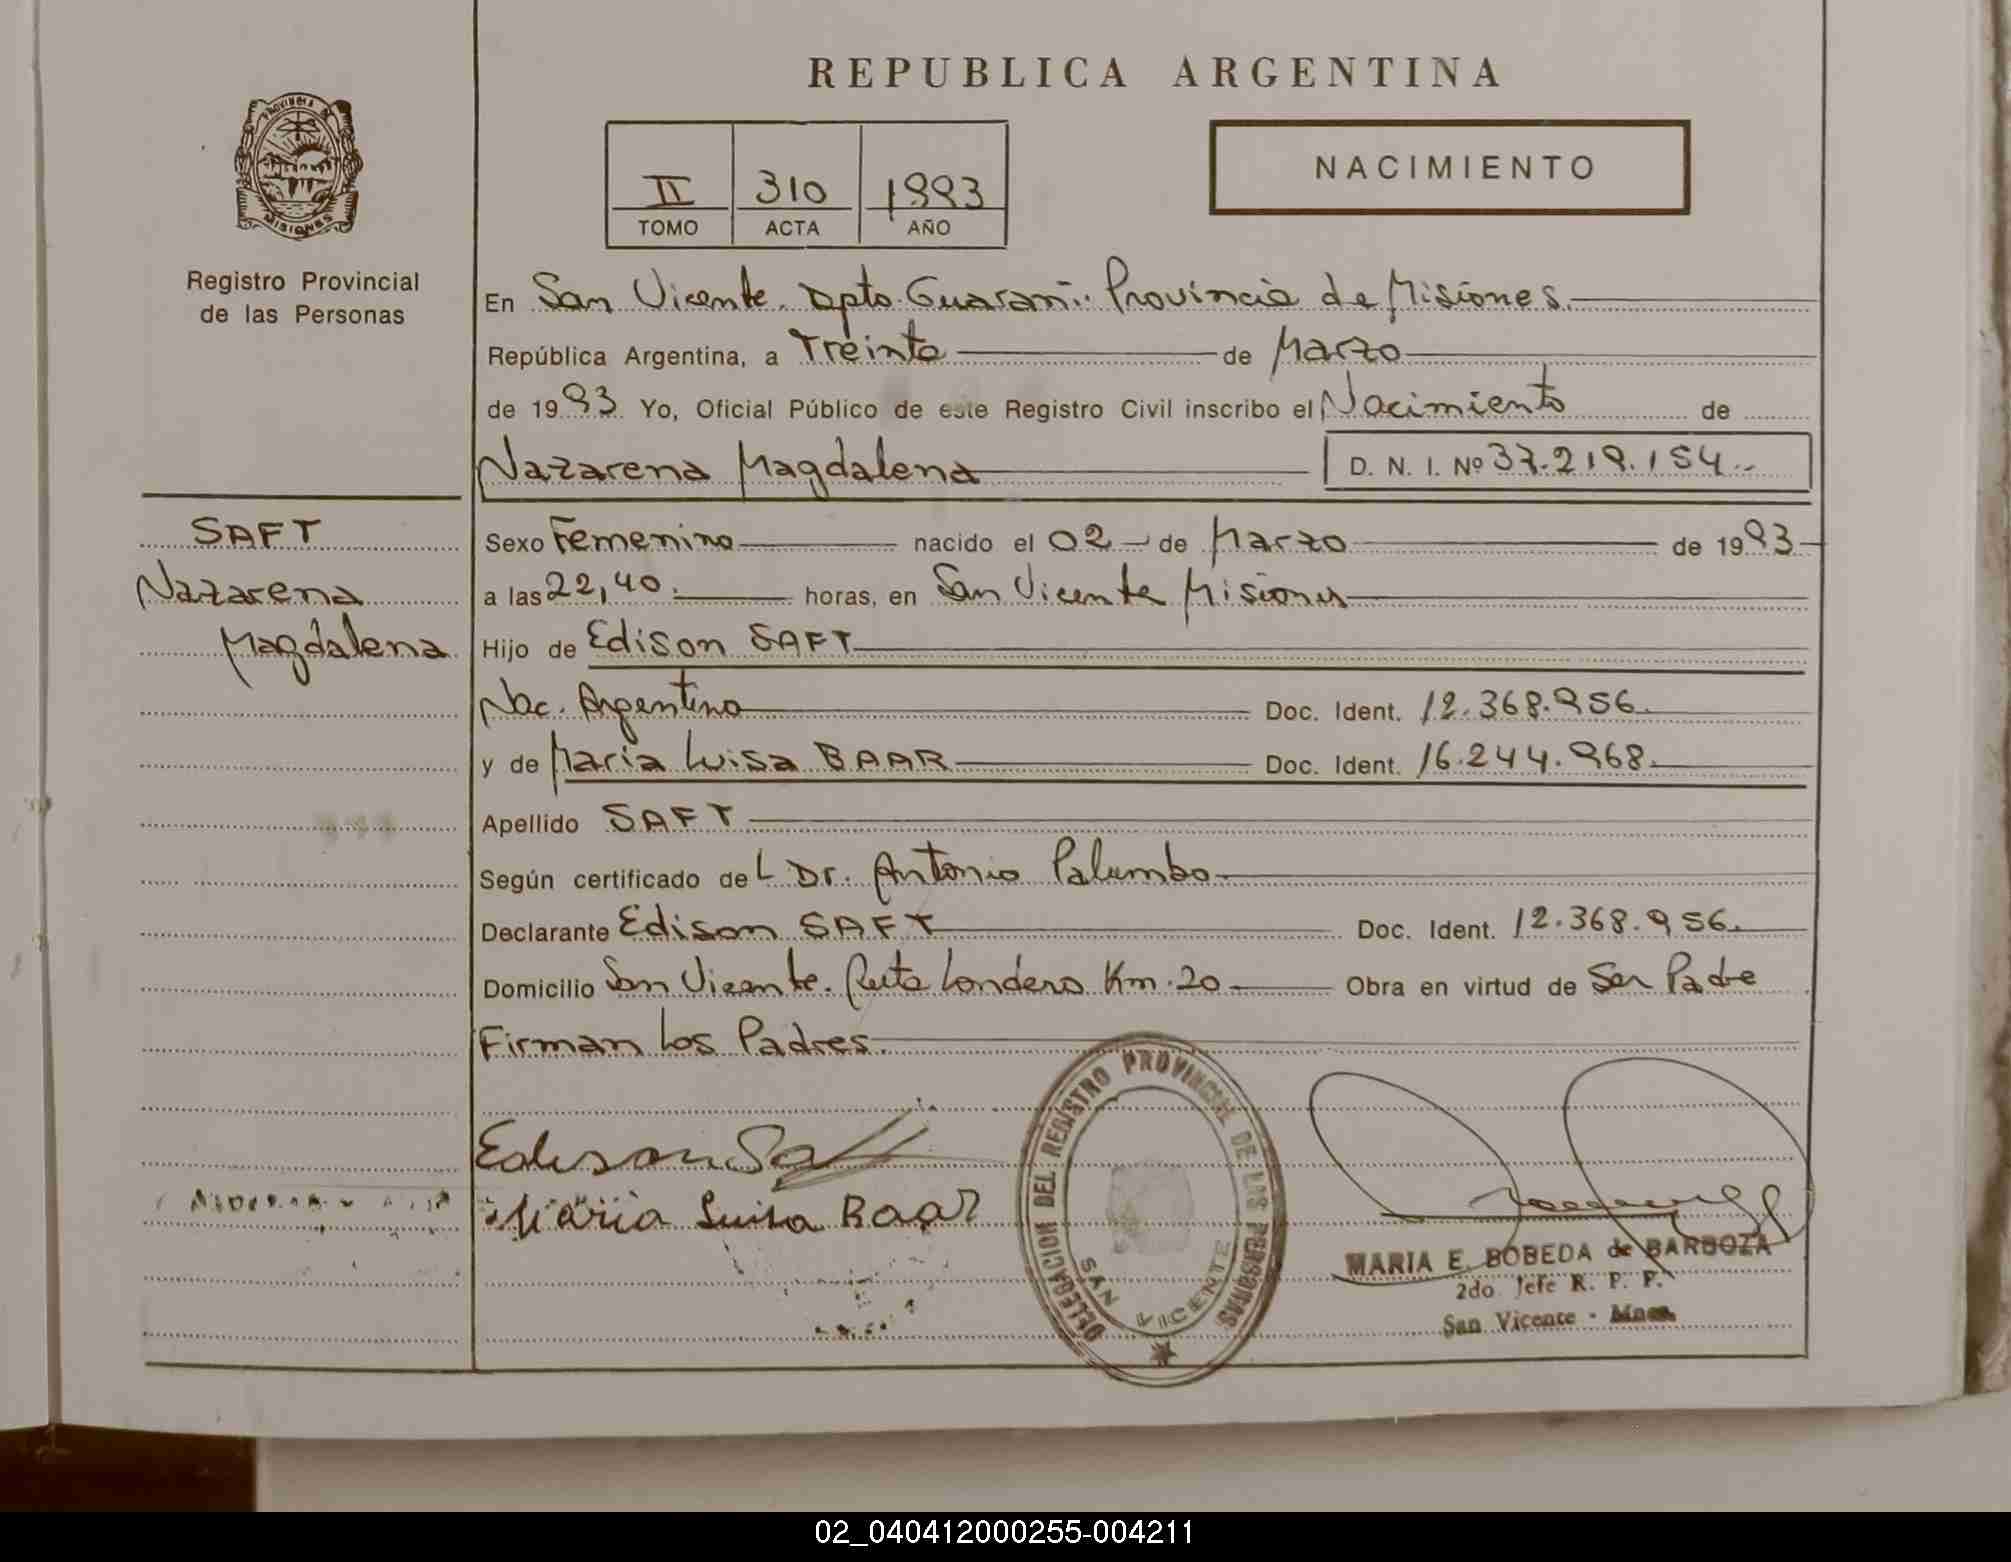 REPUBLICA ARGENTINA
PROVINCIA DE
MISIONES
Registro Provincial
de las Personas
II 310 1993
TOMO ACTA AÑO
NACIMIENTO
En San Vicente. Dpto. Guaraní. Provincia de Misiones.
República Argentina, a Treinta de Marzo
de 1993. Yo, Oficial Público de este Registro Civil inscribo el Nacimiento de
Nazarena Magdalena D. N. I. Nº 37.219.154.-
SAFT
Nazarena
Magdalena
Sexo Femenino nacido el 02 de Marzo de 1993
a las 22,40. horas, en San Vicente Misiones
Hijo de Edison SAFT
Nac. Argentina Doc. Ident. 12.368.956.
y de Maria Luisa BAAR Doc. Ident. 16.244.968.
Apellido SAFT
Según certificado del Dr. Antonio Palumbo
Declarante Edison SAFT Doc. Ident. 12.368.956.
Domicilio San Vicente. Ruta Londero Km. 20 Obra en virtud de Ser Padre
Firman Los Padres.
Edison Saft
Maria Luisa Baar
DELEGACION DEL REGISTRO PROVINCIAL DE LAS PERSONAS
SAN VICENTE
MARIA E. BOBEDA de BARBOZA
2do. Jefe R. P. P.
San Vicente - Mnes.
02_040412000255-004211